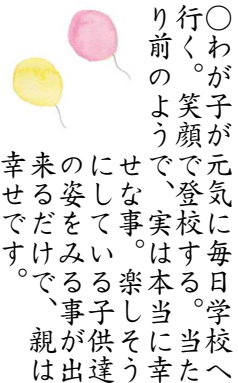 ○わが子が元気に毎日学校へ
行く。笑顔で登校する。当た
り前のようで、実は本当に幸
せな事。楽しそう
にしている子供達
の姿をみる事が出
来るだけで、親は
幸せです。